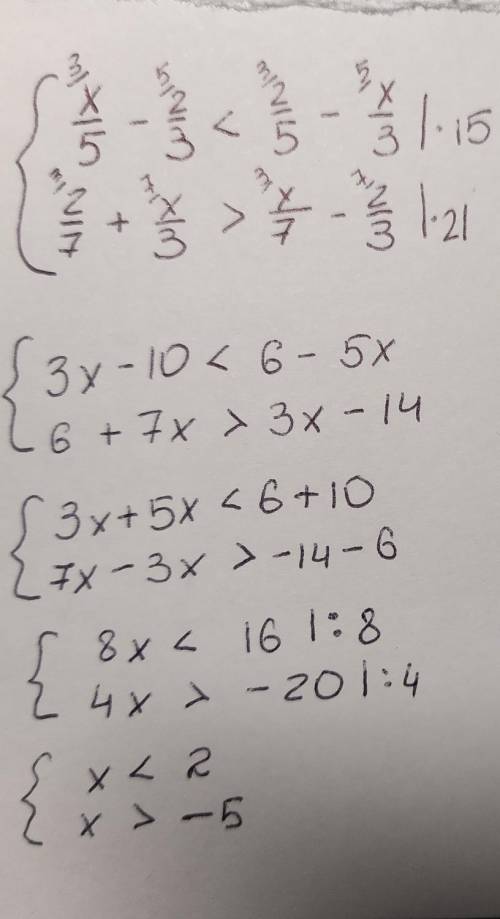 { ³⁄x/5 - ⁵⁄2/3 < ³⁄2/5 - ⁵⁄x/3 |·15
³⁄2/7 + ⁷⁄x/3 > ³⁄x/7 - ⁷⁄2/3 |·21
{ 3x - 10 < 6 - 5x
6 + 7x > 3x - 14
{ 3x + 5x < 6 + 10
7x - 3x > -14 - 6
{ 8x < 16 |:8
4x > -20 |:4
{ x < 2
x > -5